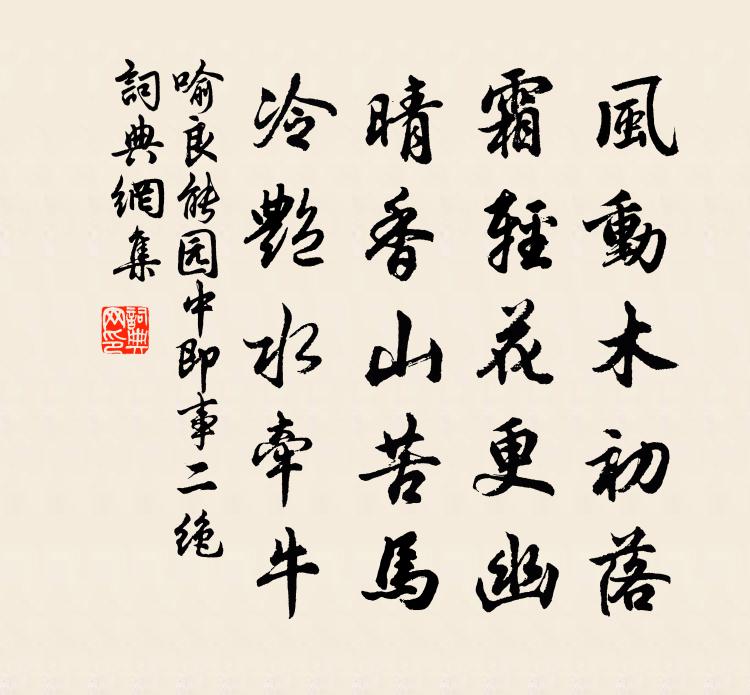 風動木初落
霜輕花更幽
晴香山苦馬
冷艷水牽牛
喻良能园中即事二绝
詞典網集
詞典
网印